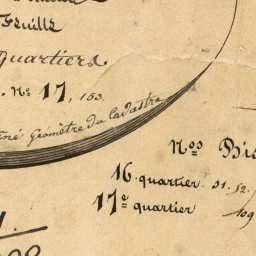 Feuille
Quartiers
Nº 17, 153.
Géomètre du Cadastre
Nos
16 quartier 51. 52.
17e quartier 109